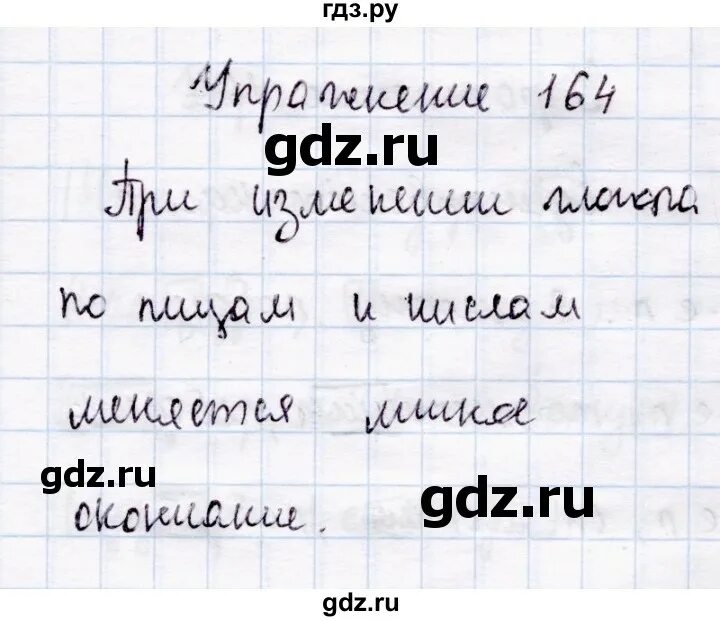 гдз.ру
Упражнение 164
gdz.ru
При изменении глагола
по лицам и числам
меняется
gdz.ru
gdz.ru
окончание.
gdz.ru